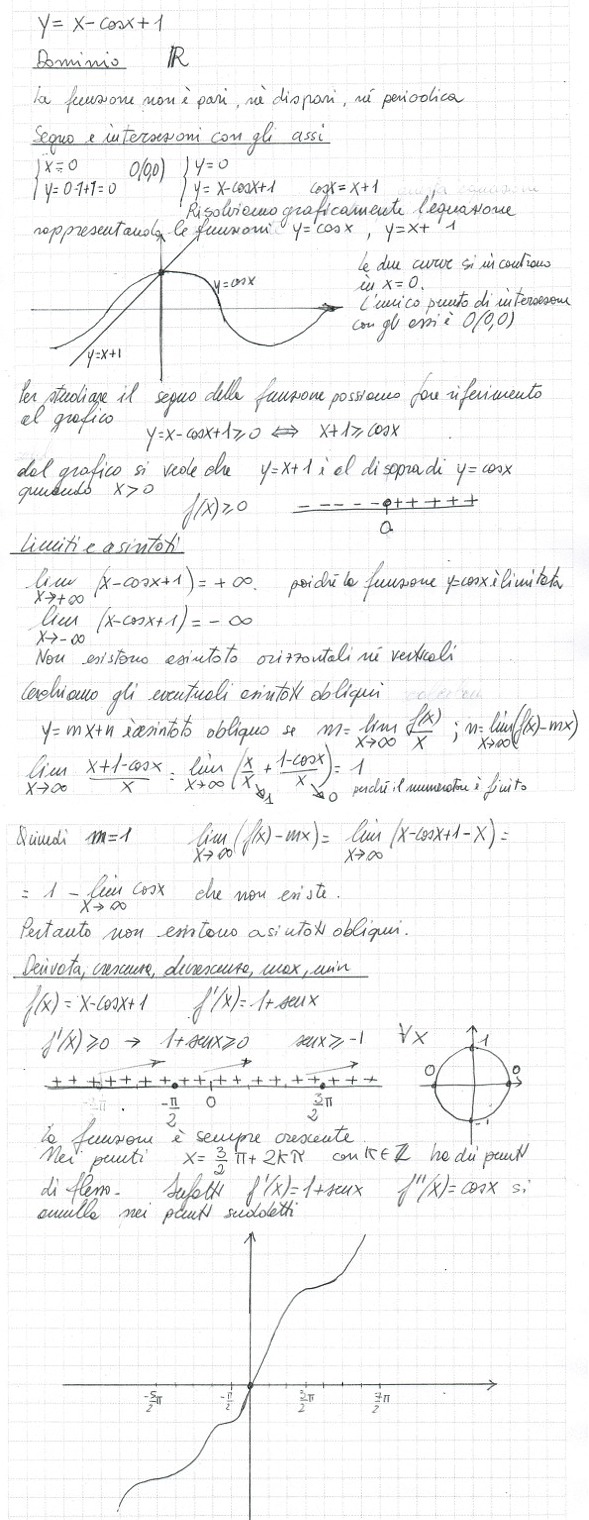 y = x-cosx+1
Dominio ℝ
La funzione non è pari, nè dispari, nè periodica
Segno e intersezioni con gli assi
{x=0 O(0,0) {y=0
{y=0-1+1=0 {y=x-cosx+1 cosx=x+1
Risolviamo graficamente l'equazione
rappresentando le funzioni y=cosx, y=x+1
Le due curve si incontrano
in x=0.
L'unico punto di intersezione
con gli assi è O(0,0)
y=cosx
y=x+1
Per studiare il segno della funzione possiamo fare riferimento
al grafico
y=x-cosx+1≥0 ⟺ x+1≥cosx
dal grafico si vede che y=x+1 è al di sopra di y=cosx
quando x>0
f(x)≥0 - - - - - + + + + + +
0
Limiti e asintoti
lim x→+∞ (x-cosx+1) = +∞. poichè la funzione y=cosx è limitata
lim x→-∞ (x-cosx+1) = -∞
Non esistono asintoto orizzontali nè verticali
Cerchiamo gli eventuali asintoti obliqui
y=mx+n è asintoto obliquo se m=lim x→∞ f(x)/x ; n=lim x→∞ (f(x)-mx)
lim x→∞ (x+1-cosx)/x = lim x→∞ (x/x + (1-cosx)/x) = 1
1 0 perché il numeratore è finito
Quindi m=1 lim x→∞ (f(x)-mx) = lim x→∞ (x-cosx+1-x) =
= 1 - lim x→∞ cosx che non esiste.
Pertanto non esistono asintoti obliqui.
Derivata, crescenza, decrescenza, max, min
f(x) = x-cosx+1 f'(x)=1+senx
f'(x)≥0 → 1+senx≥0 senx≥-1 ∀x
1
0 0
-1
+ + + + + + + + + + + + + + + + +
-π/2 0 3/2π
La funzione è sempre crescente.
Nei punti x=3/2π+2kπ con k∈ℤ ha dei punti
di flesso. Infatti f'(x)=1+senx f''(x)=cosx si
annulla nei punti suddetti
-5/2π -π/2 3/2π 7/2π